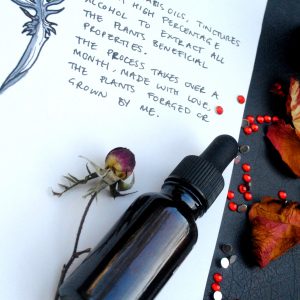 ABIS OILS, TINCTURES
HIGH PERCENTAGE
ALCOHOL TO EXTRACT ALL
THE PLANTS BENEFICIAL
PROPERTIES.
THE PROCESS TAKES OVER A
MONTH. MADE WITH LOVE,
THE PLANTS FORAGED OR
GROWN BY ME.